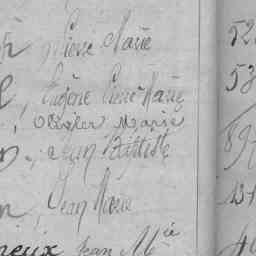 Pierre Marie 52
Eugène Pierre Marie 53
Olivier Marie
Jean Baptiste 89
Jean Marie 131
neux Jean Mie